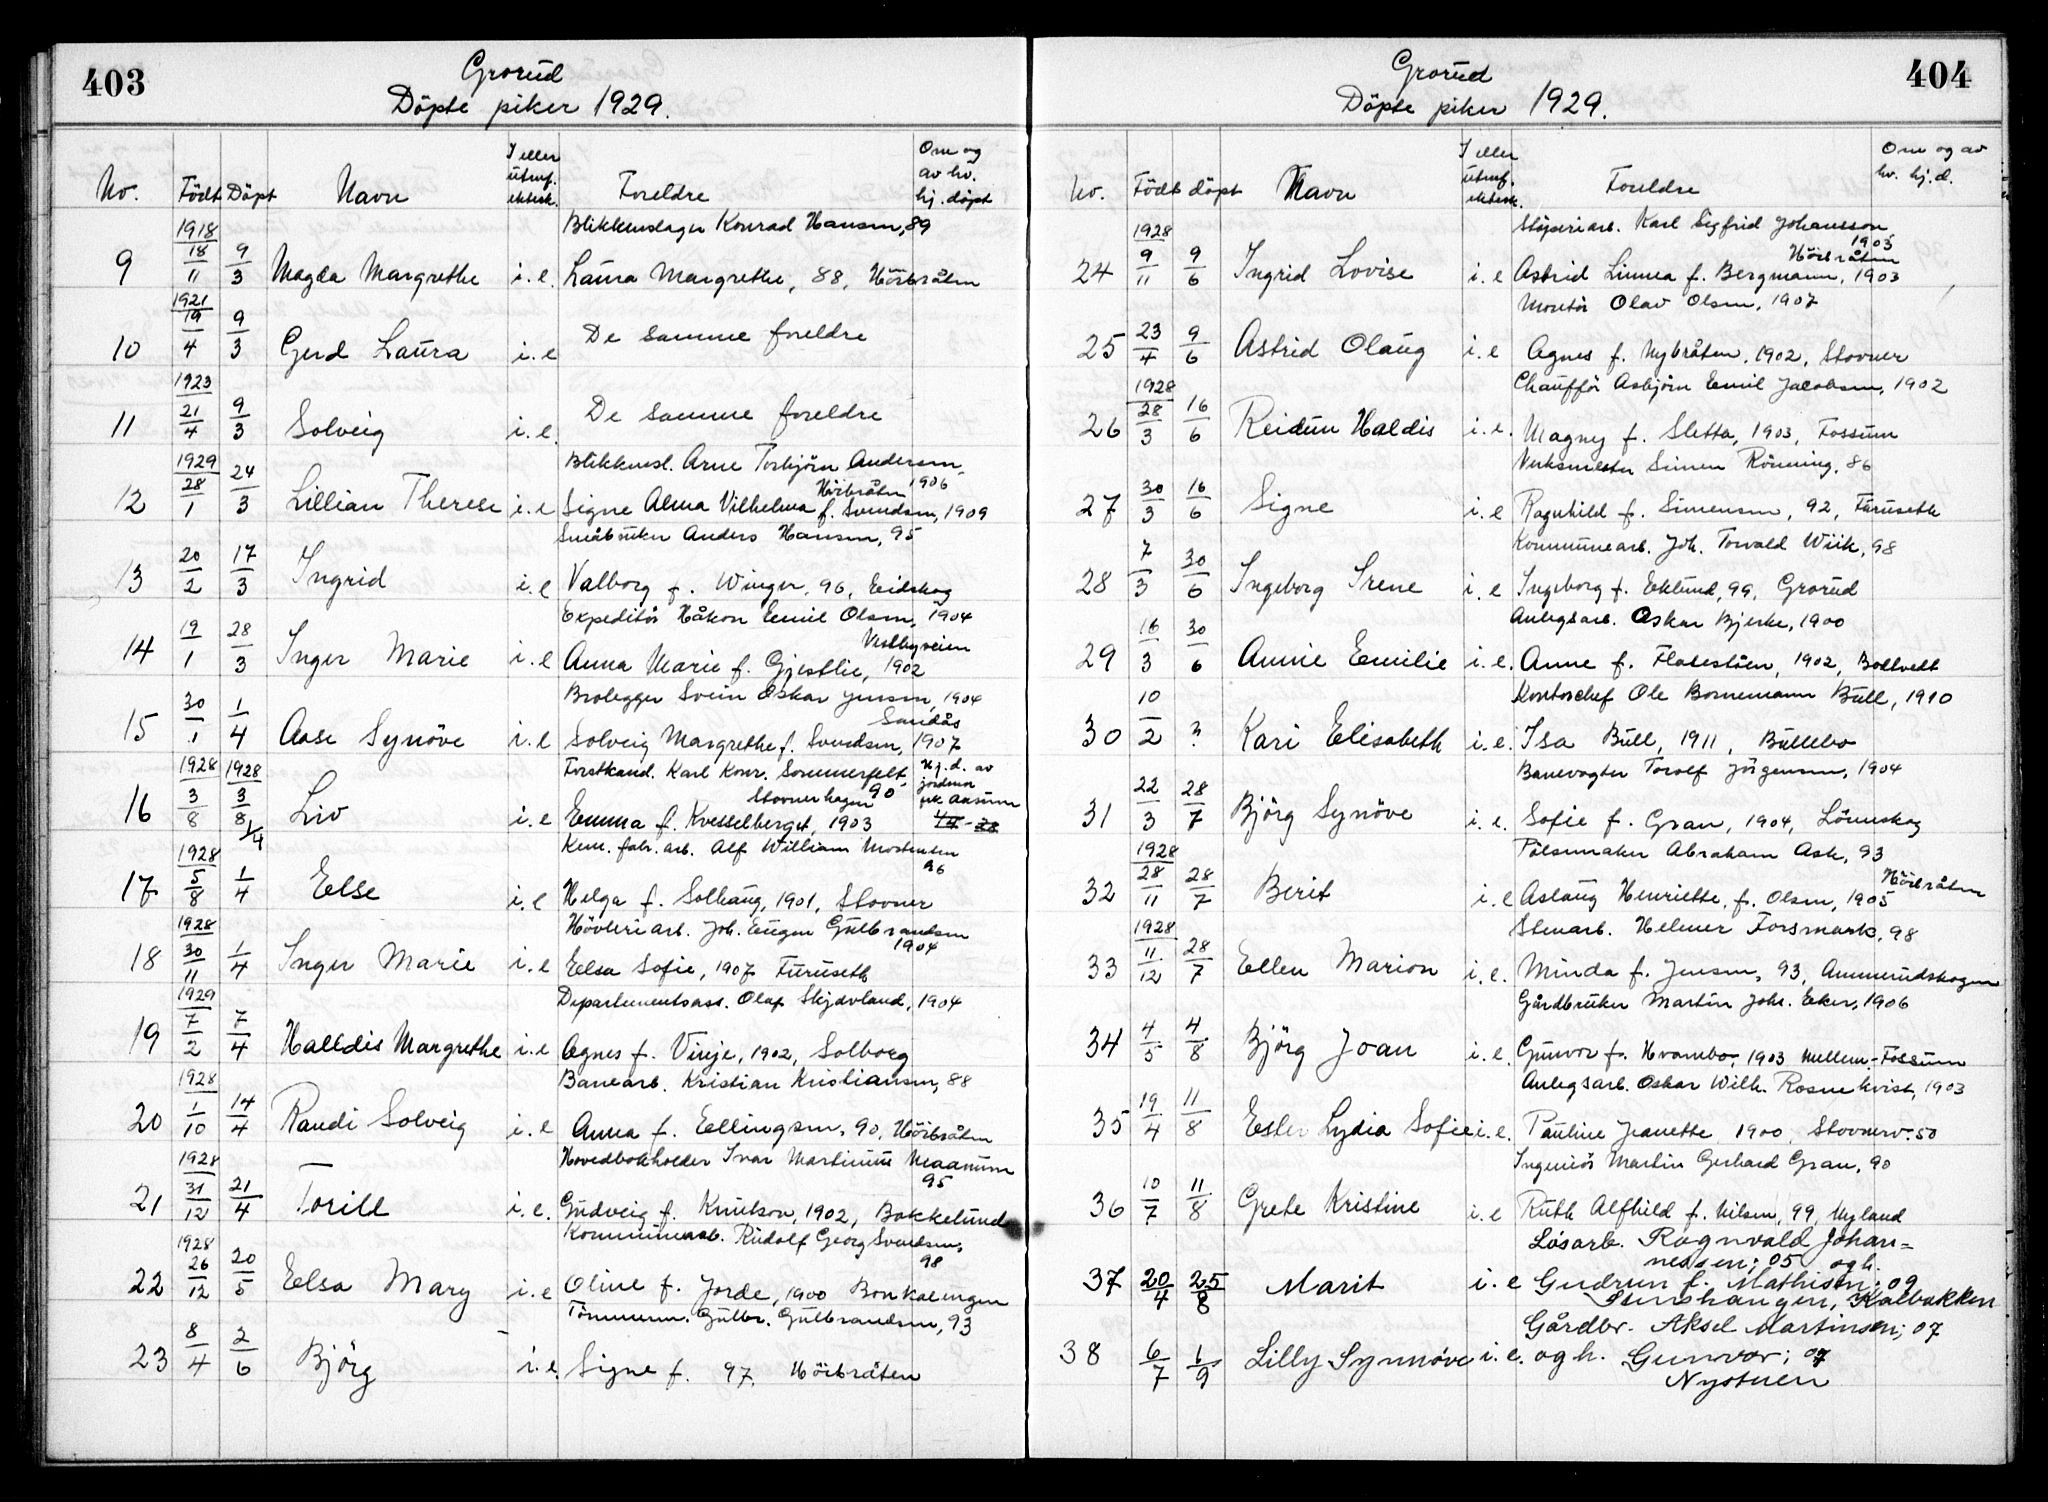 403
Grorud
Döpte piker 1929.
No. Födt Döpt Navn I eller utenf. ektesk. Foreldre Om og av hv. hj. döpt
1918 Blikkenslager Konrad Hansen, 89
9 18/11 9/3 Magda Margrethe i.e. Laura Margrethe, 88, Höibråten
1921
10 19/4 9/3 Gerd Laura i.e De samme foreldre
1923
11 21/4 9/3 Solveig i.e. De samme foreldre
1929 Blikkensl. Arne Torbjörn Andersen, 1906
12 28/1 24/3 Lillian Therese i.e Signe Alma Vilhelma f. Svendsen, 1909 Höibråten
Småbruker Anders Hansen, 95
13 20/2 17/3 Ingrid i.e Valborg f. Winger, 96, Eidskog
Expeditör Håkon Emil Olsen, 1904
14 19/1 28/3 Inger Marie i.e Anna Marie f. Gjestlie, 1902 Vestbyveien
Brolegger Svein Oskar Jensen, 1904
15 30/1 1/4 Aase Synöve i.e Solveig Margrethe f. Svendsen, 1907 Sandås
1928 1928 Forstkand. Karl Konr. Sommerfelt, 90 Hj.d. av jordmor frk Aasum
16 3/8 3/8 1/4 Liv i.e Emma f. Kvesselberget, 1903 Stovnerhagen
1928 Kem. fabr. arb. Alf William Mortensen 96
17 5/8 1/4 Else i.e Helga f. Solhaug, 1901, Stovner
1928 Hövleriarb. Joh. Eugen Gulbrandsen 1904
18 30/11 1/4 Inger Marie i.e Elsa Sofie, 1907 Furuseth
1929 Departementsass. Olaf Skjævland, 1904
19 7/2 7/4 Halldis Margrethe i.e Agnes f. Vinje, 1902, Solborg
1928 Banearb. Kristian Kristiansen, 88
20 1/10 14/4 Randi Solveig i.e Anna f. Ellingsen, 90, Höibråten
1928 Hovedbokholder Ivar Martinius Maanum 95
21 31/12 21/4 Torill i.e. Gudveig f. Knutson, 1902, Bakkelund
1928 Kommunearb. Rudolf Georg Svendsen, 98
22 26/12 20/5 Elsa Mary i.e Oline f. Jorde, 1900 Bonkalengen
Tömmerm. Gulbr. Gulbrandsen, 93
23 8/4 2/6 Björg i.e. Signe f. 97. Höibråten
404
Grorud
Döpte piker 1929.
No. Födt döpt Navn I eller utenf. ektesk. Foreldre Om og av hv. hj.d.
1928 Stöperiarb. Karl Sigfrid Johansson 1903
24 9/11 9/6 Ingrid Lovise i.e Astrid Linnea f. Bergmann, 1903 Höibråten
Montör Olav Olsen, 1907
25 23/4 9/6 Astrid Olaug i.e Agnes f. Nybråten, 1902, Stovner
1928 Chaufför Asbjörn Emil Jacobsen, 1902
26 28/3 16/6 Reidun Haldis i.e. Magny f. Sletta, 1903, Fossum
Verksmester Simen Rönning, 86
27 30/3 16/6 Signe i.e Ragnhild f. Simensen, 92, Furuseth
Kommunearb. Joh. Torvald Wiik, 98
28 7/3 30/6 Ingeborg Irene i.e Ingeborg f. Eklund, 99, Grorud
Anlegsarb. Oskar Bjerke, 1900
29 16/3 30/6 Annie Emilie i.e. Anne f. Flatestöen, 1902, Boltvedt
Kontorchef Ole Bornemann Bull, 1910
30 10/2 ? Kari Elisabeth i.e. Isa Bull, 1911, Bullebo
Banevogter Torolf Jörgensen, 1904
31 22/3 28/7 Björg Synöve i.e. Sofie f. Gran, 1904, Lörenskog
1928 Pölsemaker Abraham Ask, 93
32 28/11 28/7 Berit i.e Aslaug Henriette f. Olsen, 1905 Höibråten
1928 Stenarb. Helmer Forsmark, 98
33 11/12 28/7 Ellen Marion i.e. Minda f. Jensen, 93, Ammerudskogen
Gårdbruker Martin Joh. Eker, 1906
34 4/5 4/8 Björg Joan i.e. Gunvor f. Hvambo, 1903 Mellem-Fossum
Anlegsarb. Oskar Wilh. Rosenkvist, 1903
35 19/4 11/8 Ester Lydia Sofie i.e. Pauline Jeanette 1900, Stovnerv. 50
Ingeniör Martin Gerhard Gran, 90
36 10/7 11/8 Grete Kristine i.e Ruth Alfhild f. Nilsen, 99, Nyland
Lösarb. Ragnvald Johan=
nessen; 05 og h.
37 20/4 25/8 Marit i.e Gudrun f. Mathisen; 09
Stenhaugen, Kalbakken
Gårdbr. Aksel Martinsen; 07
38 6/7 1/9 Lilly Synnöve i.e. og h. Gunvor; 07
Nystuen